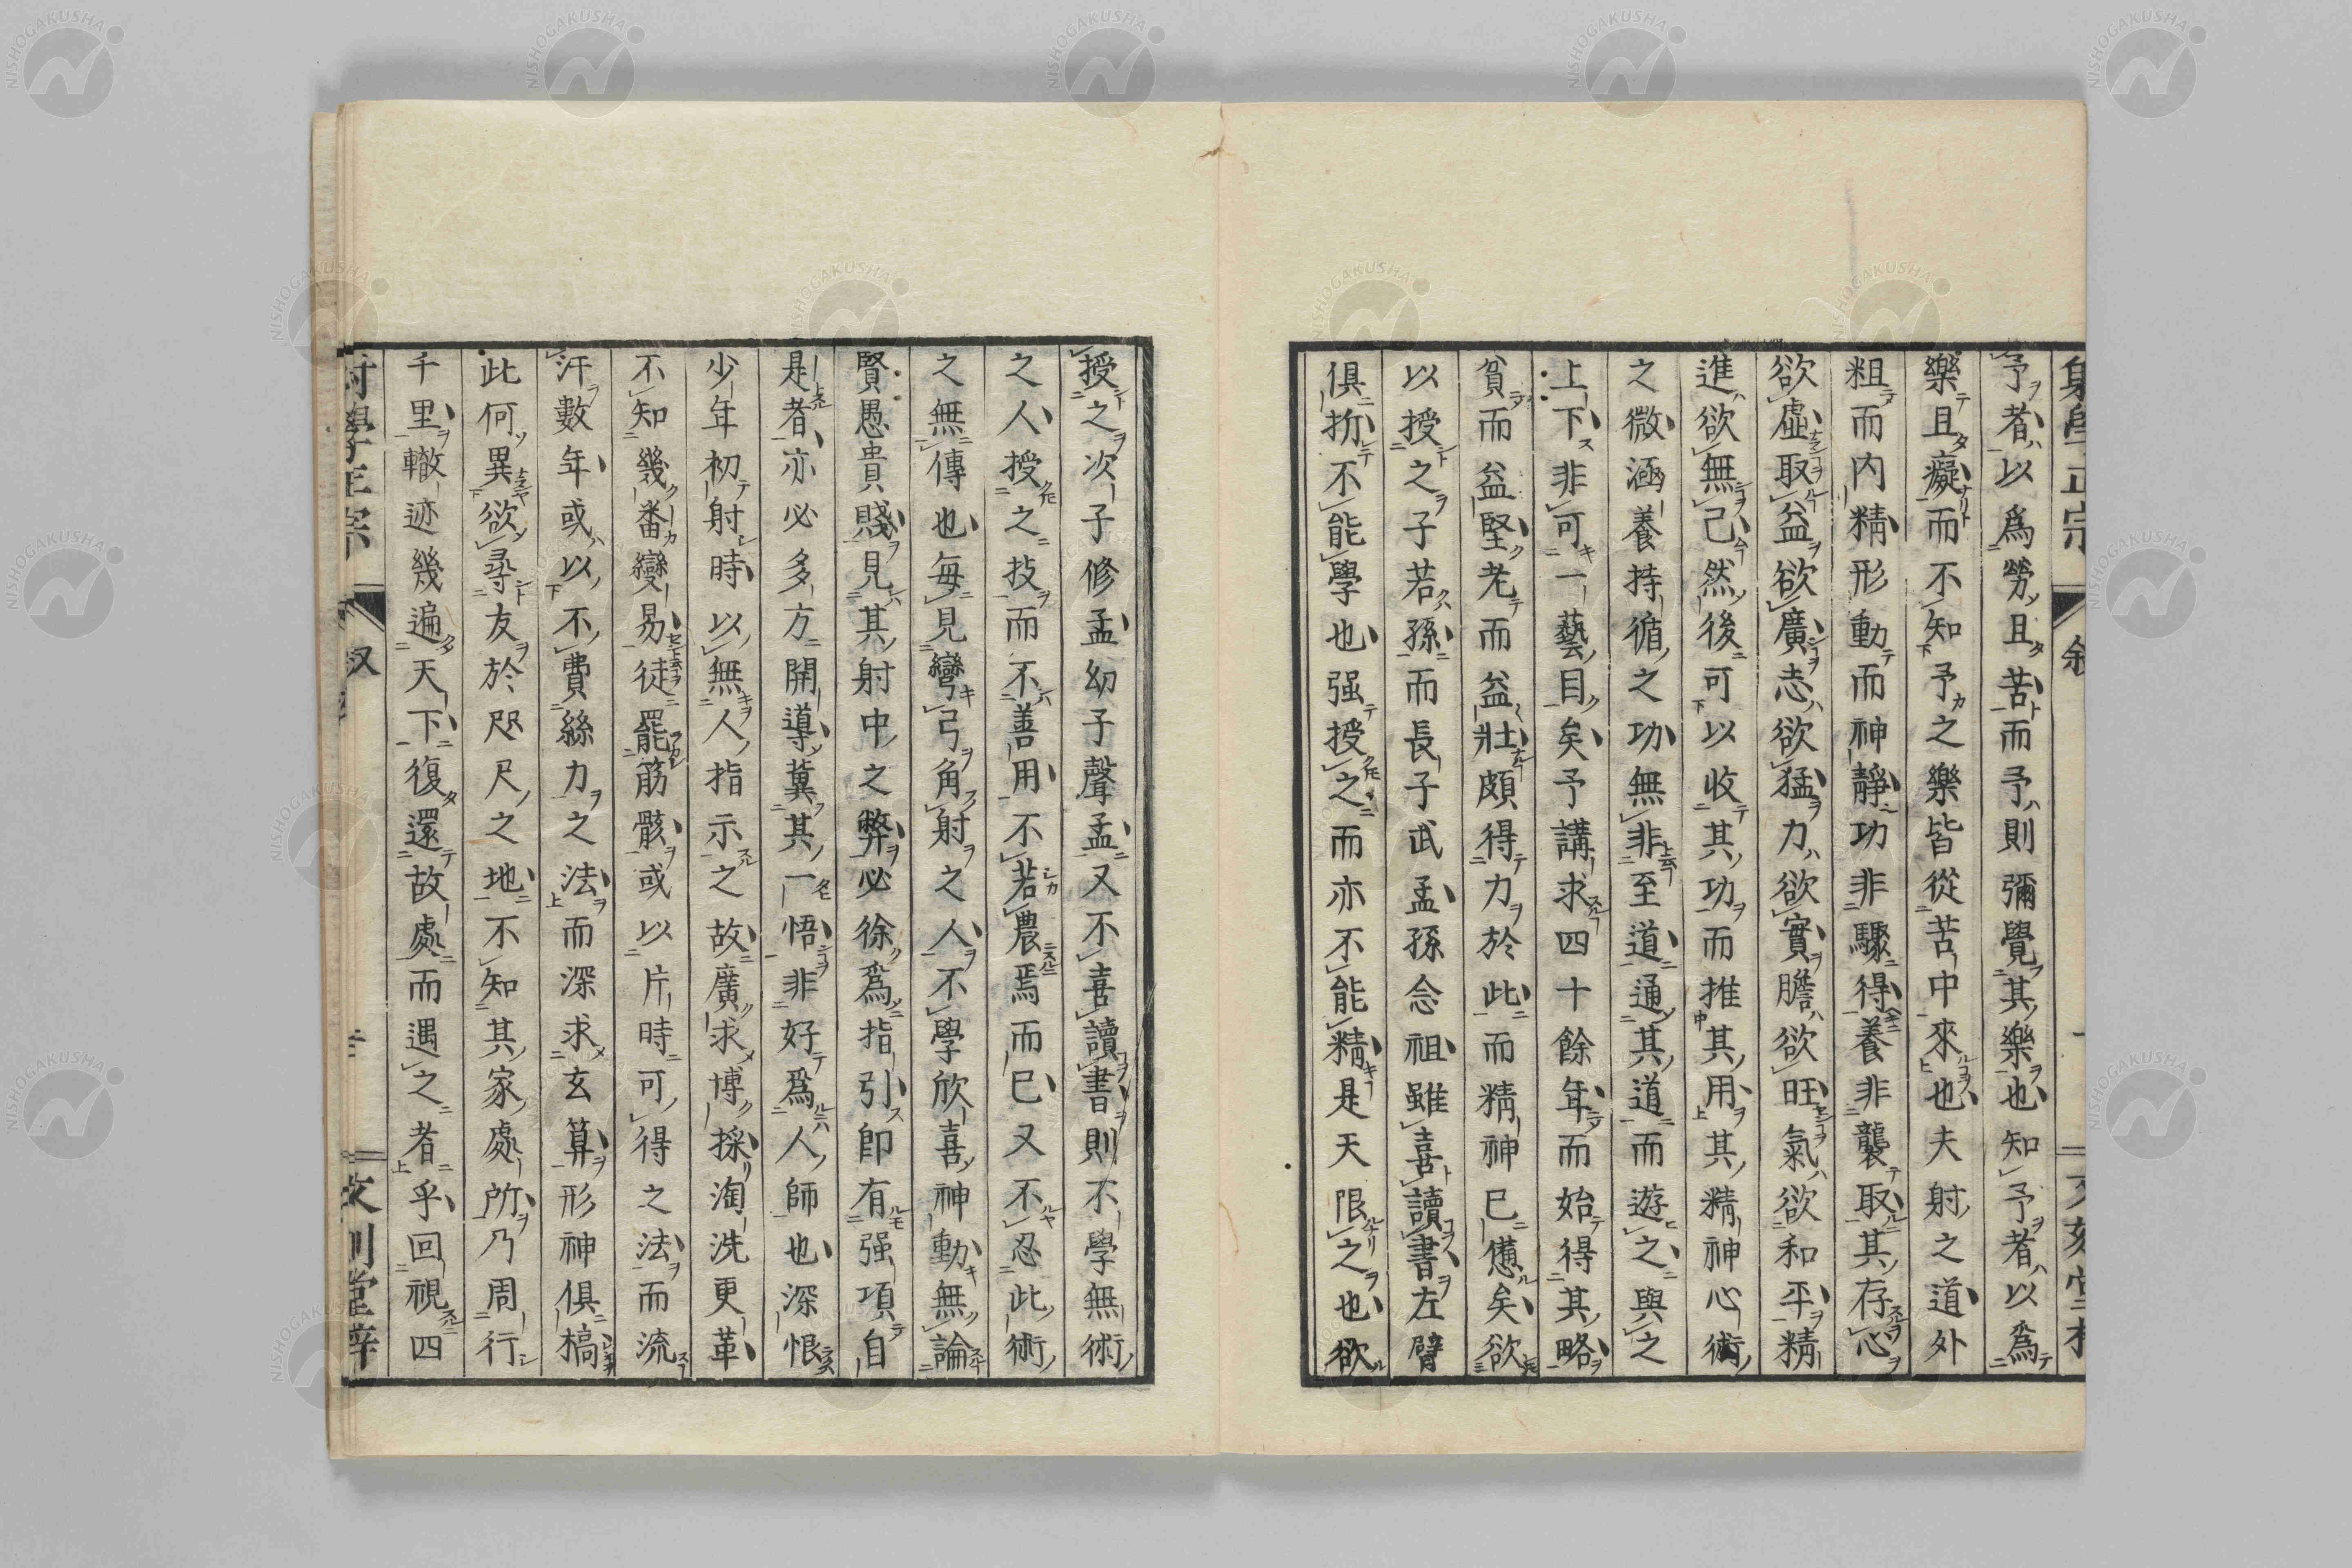 射學正宗 敘
予者以爲勞且苦而予則彌覺其樂也知予者以爲
樂且癡而不知予之樂皆從苦中來也夫射之道外
粗而内精形動而神靜功非驟得養非襲取其存心
欲虛取益欲廣志欲猛力欲實膽欲旺氣欲和平精
進欲無己然後可以收其功而推其用其精神心術
之微涵養持循之功無非至道通其道而遊之與之
上下非可一藝目矣予講求四十餘年而始得其略
貧而益堅老而益壯頗得力於此而精神已憊矣欲
以授之子若孫而長子武孟孫念祖雖喜讀書左臂
俱折不能學也强授之而亦不能精是天限之也欲
授之次子修孟幼子聲孟又不喜讀書則不學無術
之人授之技而不善用不若農焉而已又不忍此術
之無傳也每見彎弓角射之人不學欣喜神動無論
賢愚貴賤見其射中之弊必徐爲指引即有强項自
是者亦必多方開導冀其一悟非好爲人師也深恨
少年初射時以無人指示之故廣求博採淘洗更革
不知幾番變易徒罷筋骸或以片時可得之法而流
汗數年或以不費絲力之法而深求玄算形神俱槁
此何異欲尋友於咫尺之地不知其家處所乃周行
千里轍迹幾遍天下復還故處而遇之者乎回視四
學正宗
NISHOGAKUSHA